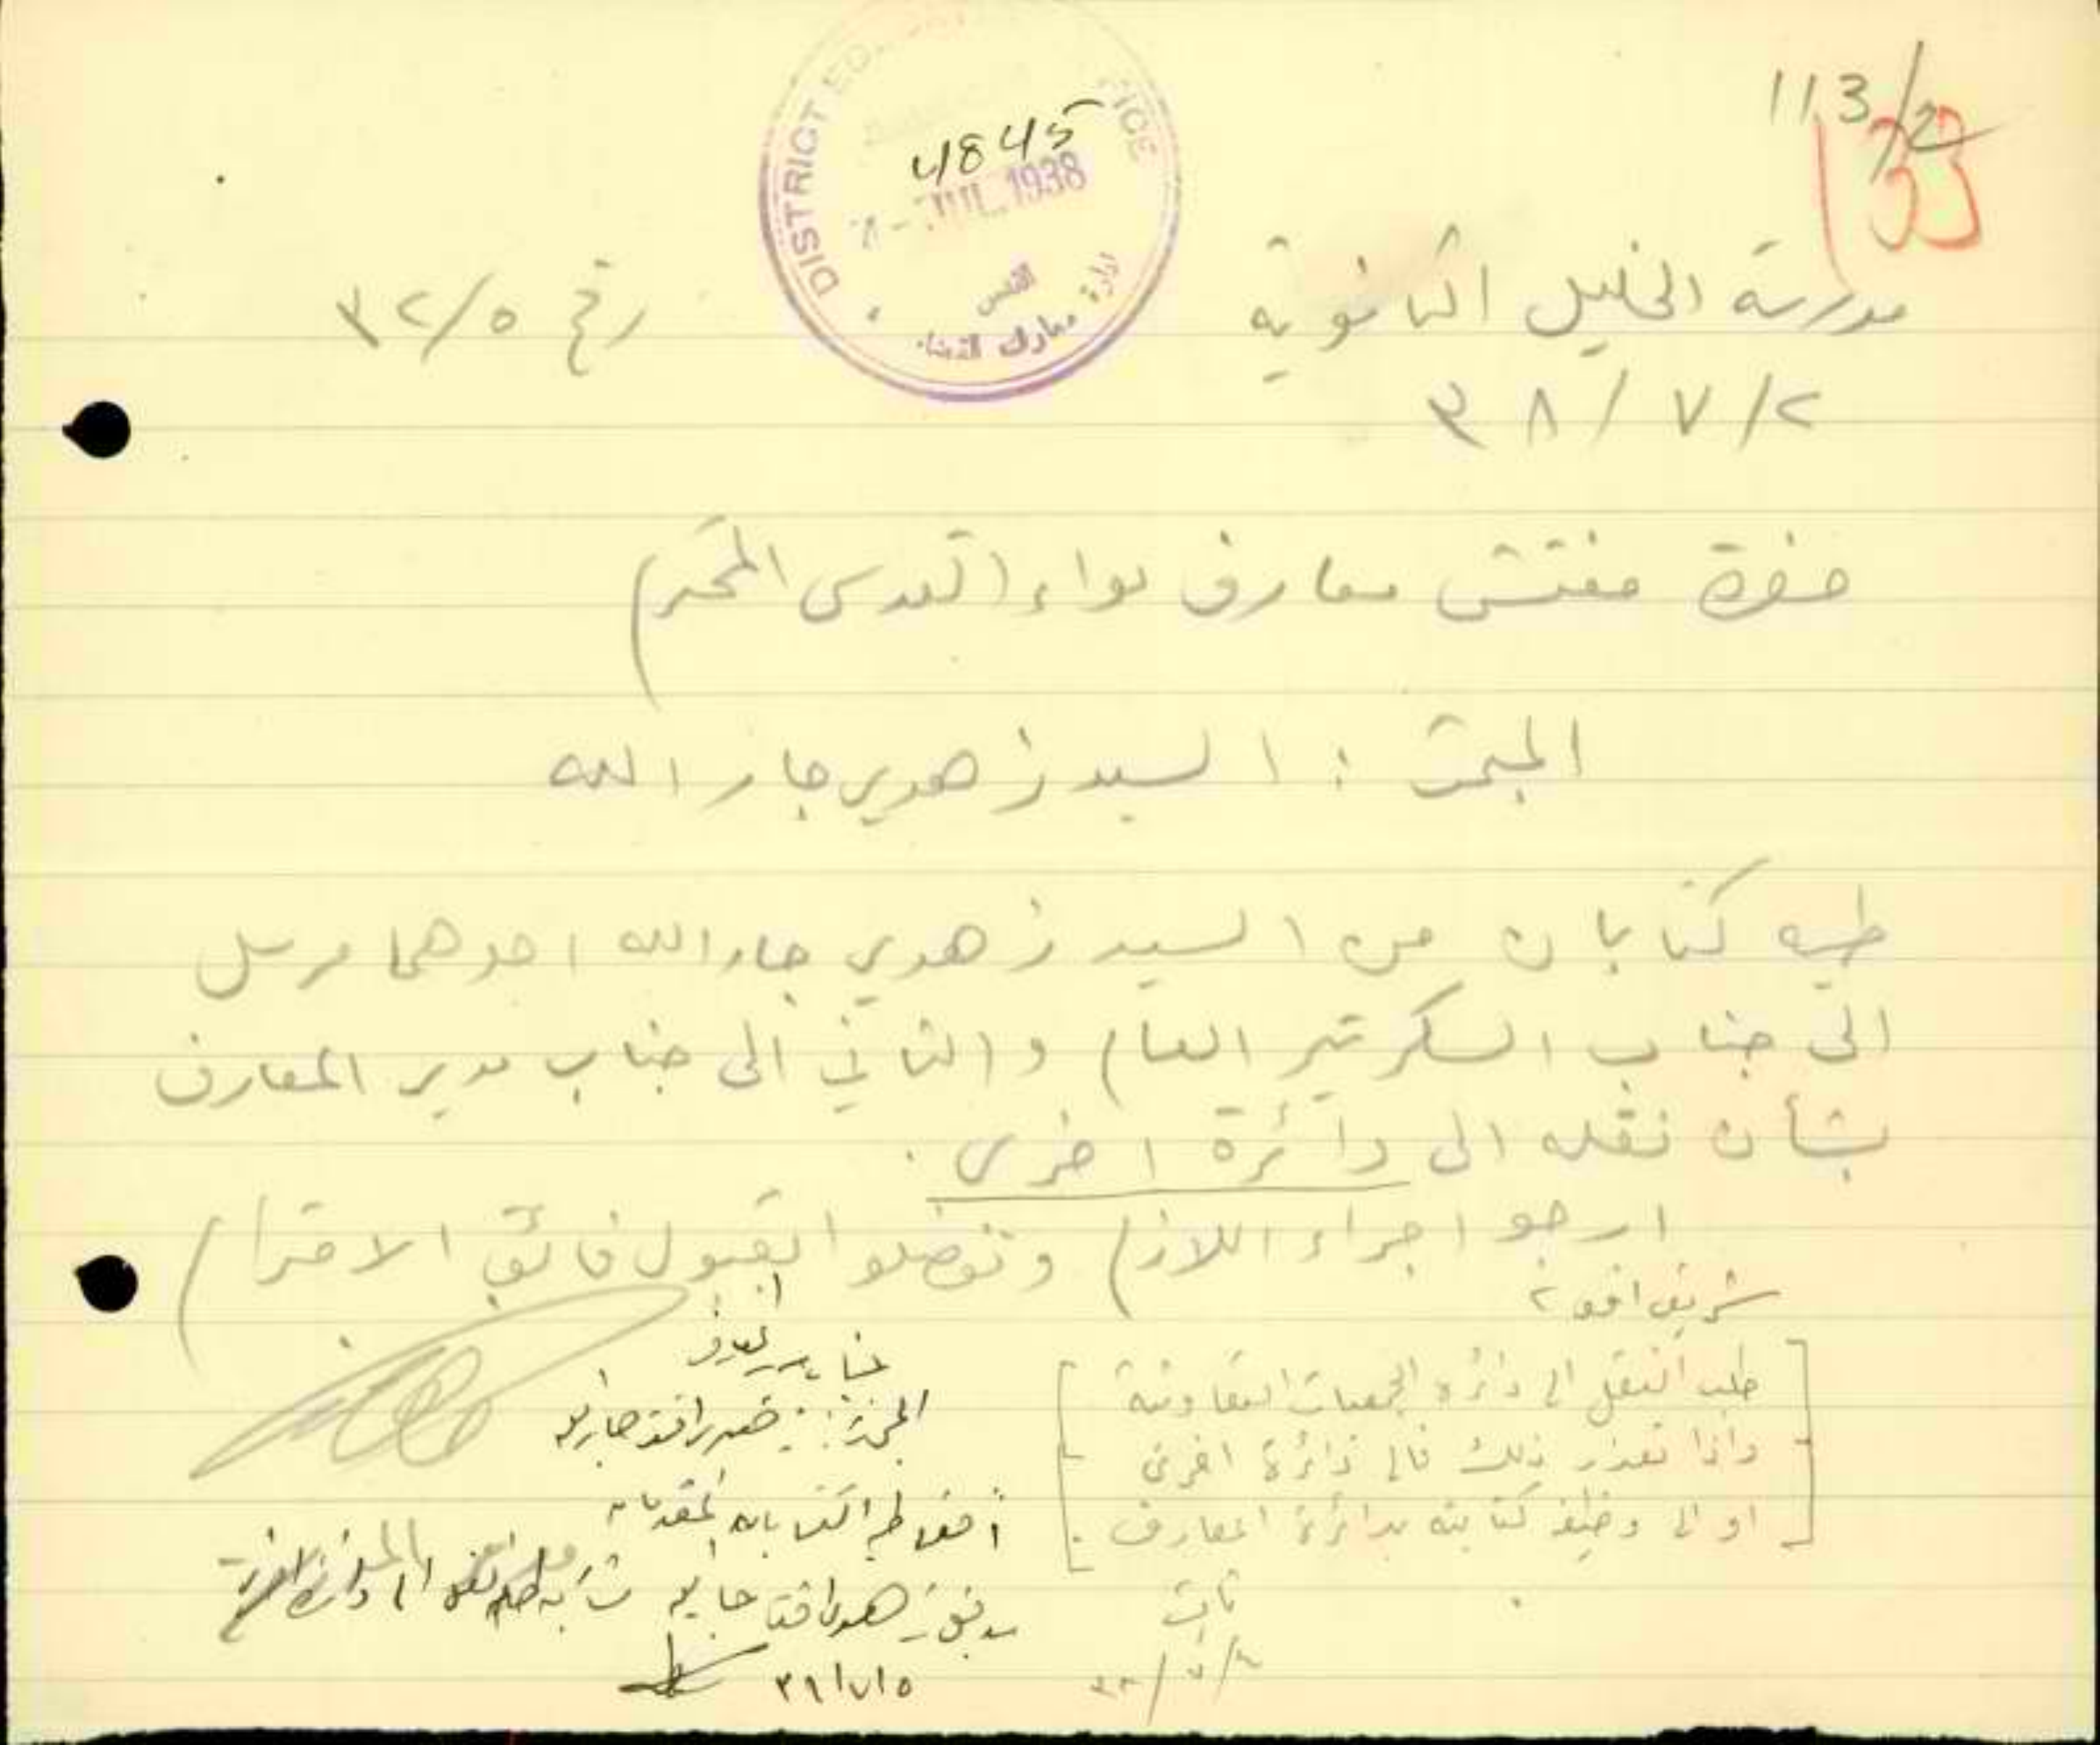 113/2
133
DISTRICT ED. ICE
4845
JUL 1938
القدس
ادارة معارف
مدرسة الخليل الثانوية
رقم ٣٢/٥
٣٨/٧/٢
حضرة مفتش معارف لواء القدس المحترم
المبحث : السيد زهدي جار الله
طيه كتابان من السيد زهدي جار الله احدهما مرسل
الى جناب السكرتير العام والثاني الى جناب مدير المعارف
بشأن نقله الى دائرة اخرى .
ارجو اجراء اللازم وتفضلوا بقبول فائق الاحترام
شريف افندي
طلب النقل الى دائرة الجمعيات التعاونية
واذا تعذر ذلك فالى دائرة اخرى
او الى وظيفة كتابية بدائرة المعارف .
ثابت
جناب مدير المعارف
زهدي افندي جار الله
طيه الكتابان المقدمان
من زهدي افندي جار الله بشأن طلبه نقله الى دائرة اخرى